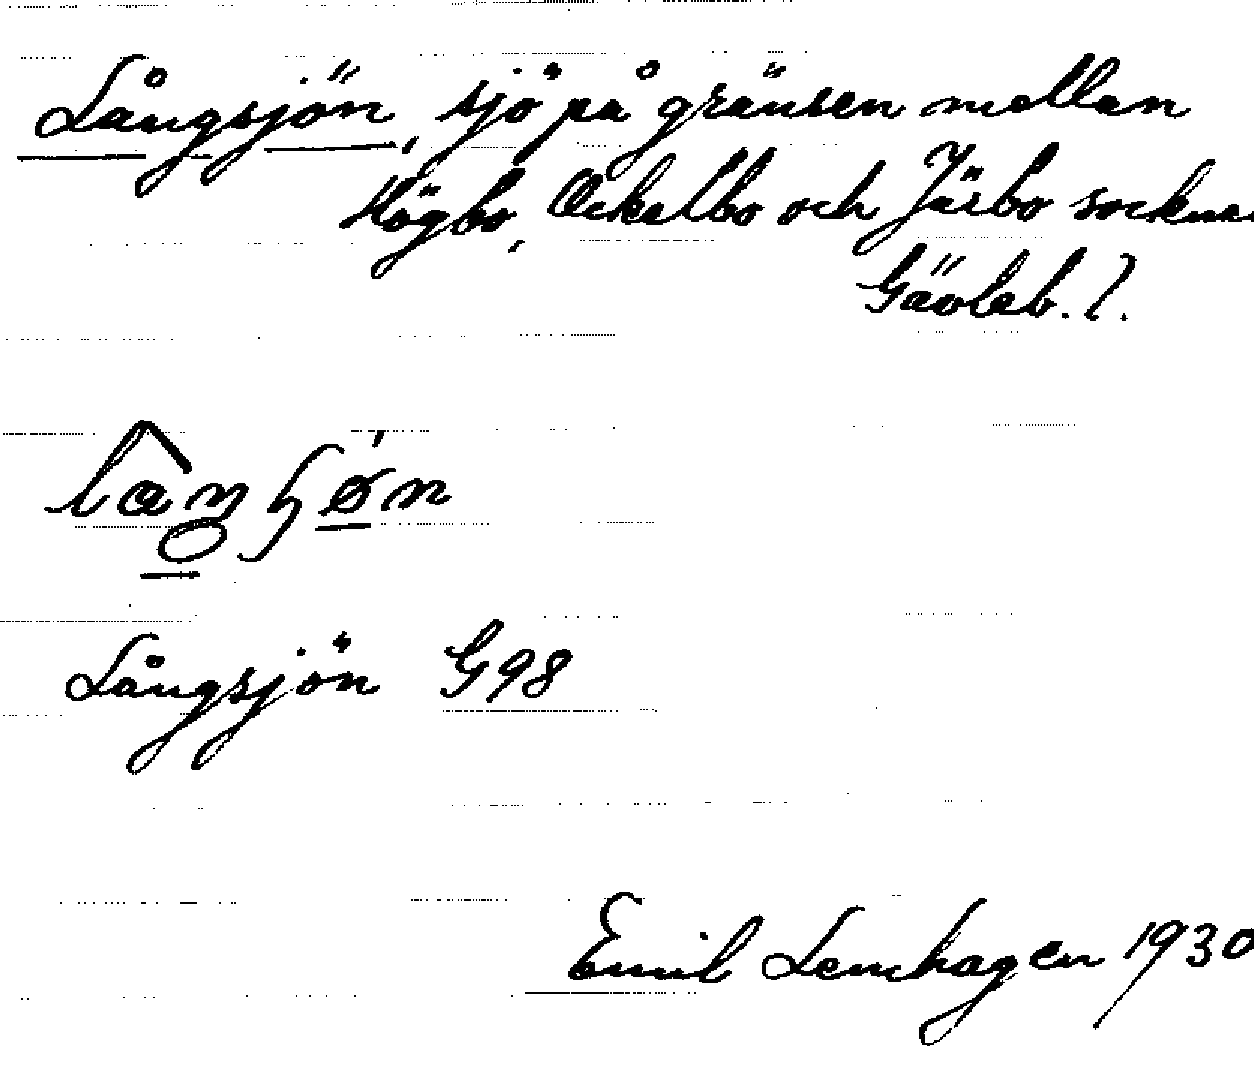 Långsjön, sjö på gränsen mellan
Högbo, Ockelbo och Järbo socknar
Gävleb. l.
Långsjön G98
Emil Lenhagen 1930